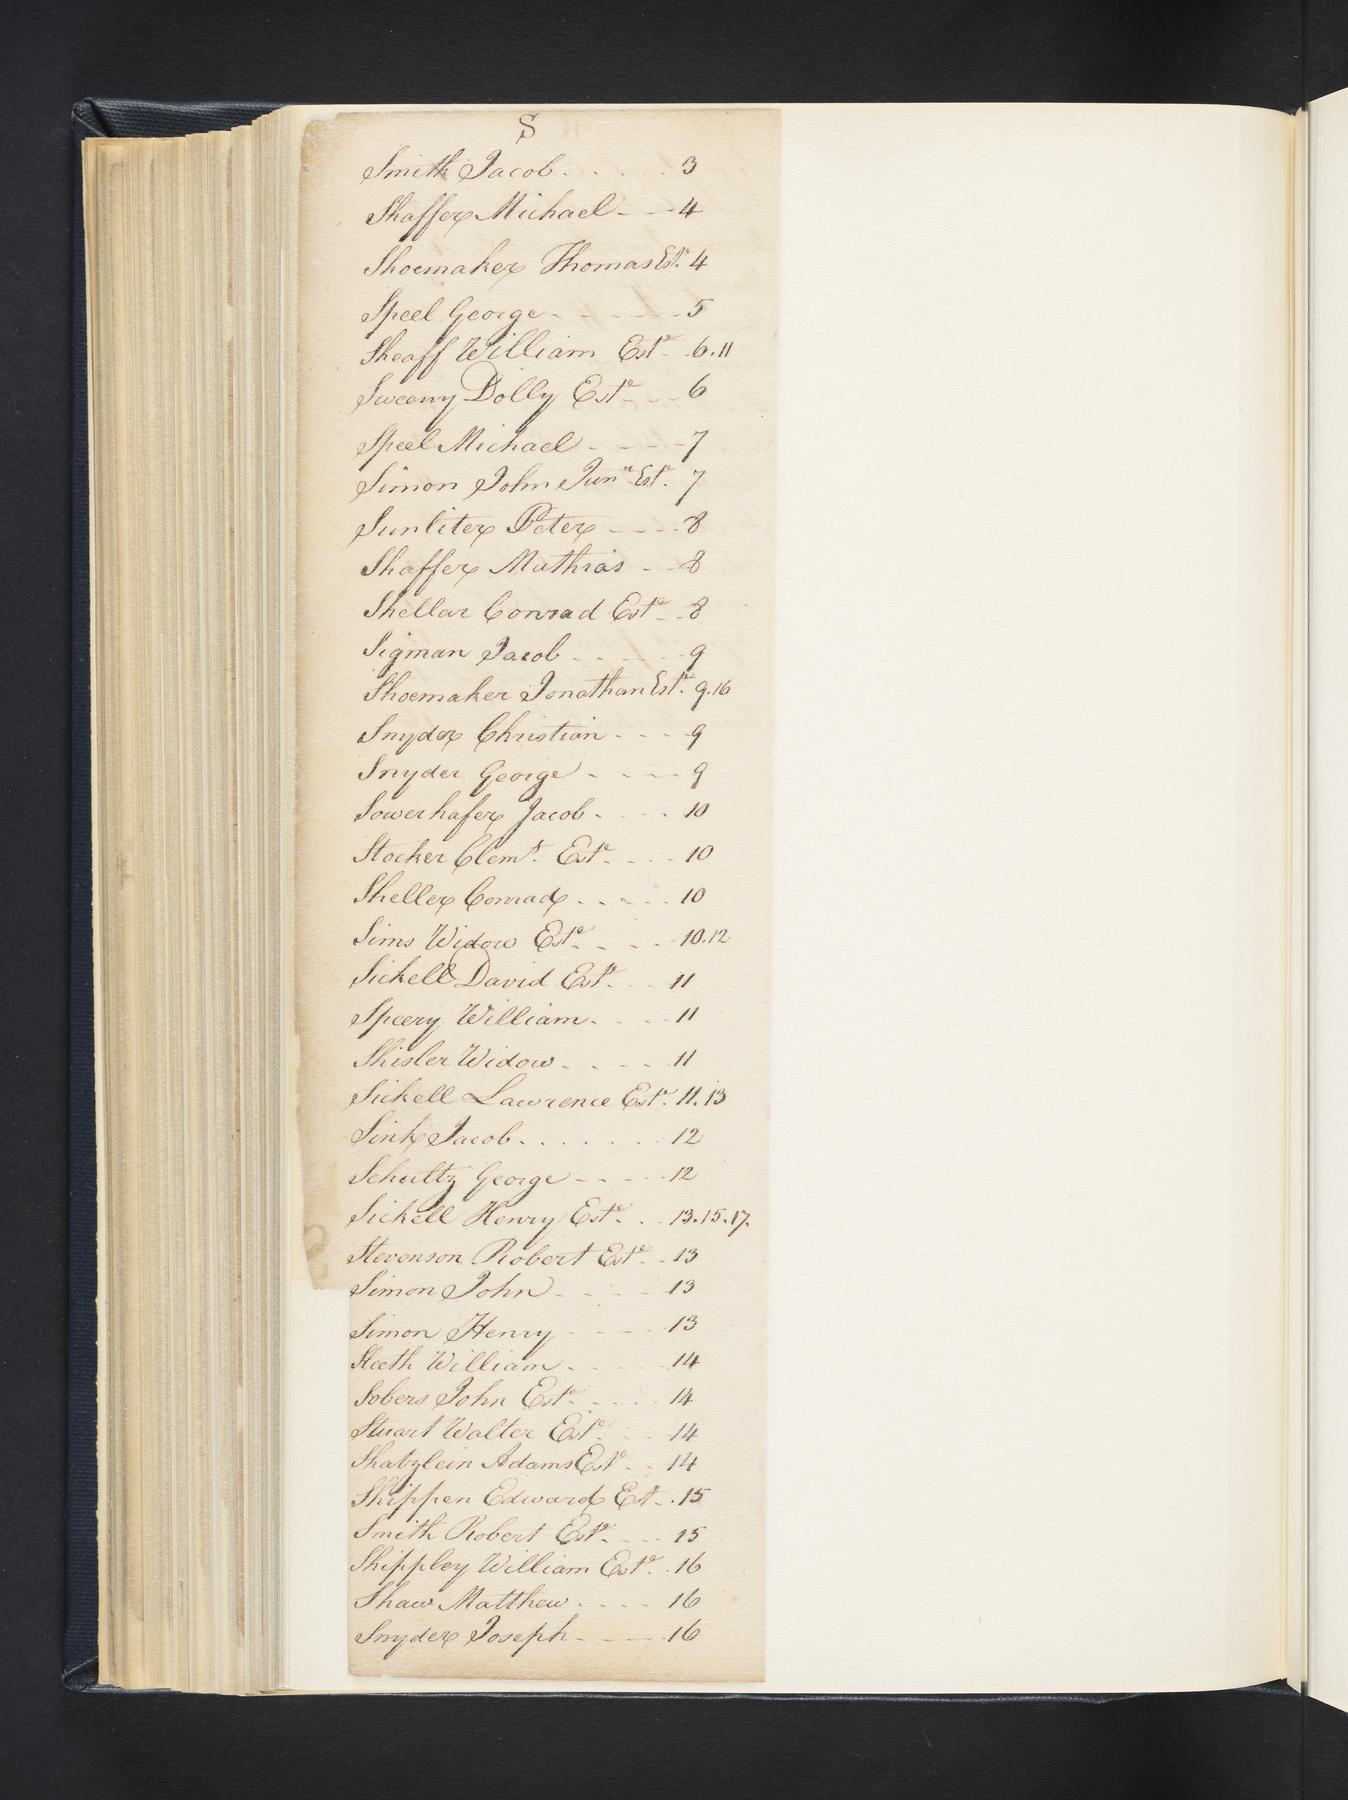 S
Smith Jacob . . . . . 3
Shaffer Michael - - - 4
Shoemaker Thomas Este. 4
Speel George - - - - - 5
Sheaff William Este - 6.11
Sweeny Dolly Este - - - 6
Speel Michael - - - - 7
Simon John Junr Este. 7
Sunliter Peter - - - - 8
Shaffer Mathias - - - 8
Shellar Conrad Este - - 8
Sigman Jacob - - - - - 9
Shoemaker Jonathan Este. 9.16
Snyder Christian - - - - 9
Snyder George - - - - 9
Sowerhafer Jacob - - - - 10
Stocker Clemt. Este. - - - 10
Sheller Conrad - - - - - 10
Sims Widow Este. - - - - 10.12
Sickell David Este. - - 11
Speery William. - - - - 11
Shisler Widow - - - - - 11
Sickell Lawrence Este. 11.13
Sink Jacob . . . . . . . 12
Schultz George - - - - - 12
Sickell Henry Este. . . 13.15.17.
Stevenson Robert Este - - 13
Simon John - - - - - 13
Simon Henry - - - - - 13
Sleeth William - - - - - 14
Sobers John Este. - - - - 14
Stuart Walter Este. - - - 14
Shatzlein Adams Este. - - 14
Shippen Edward Est - . 15
Smith Robert Este. - - - 15
Shippley William Este. . 16
Shaw Matthew - - - - 16
Snyder Joseph - - - - 16